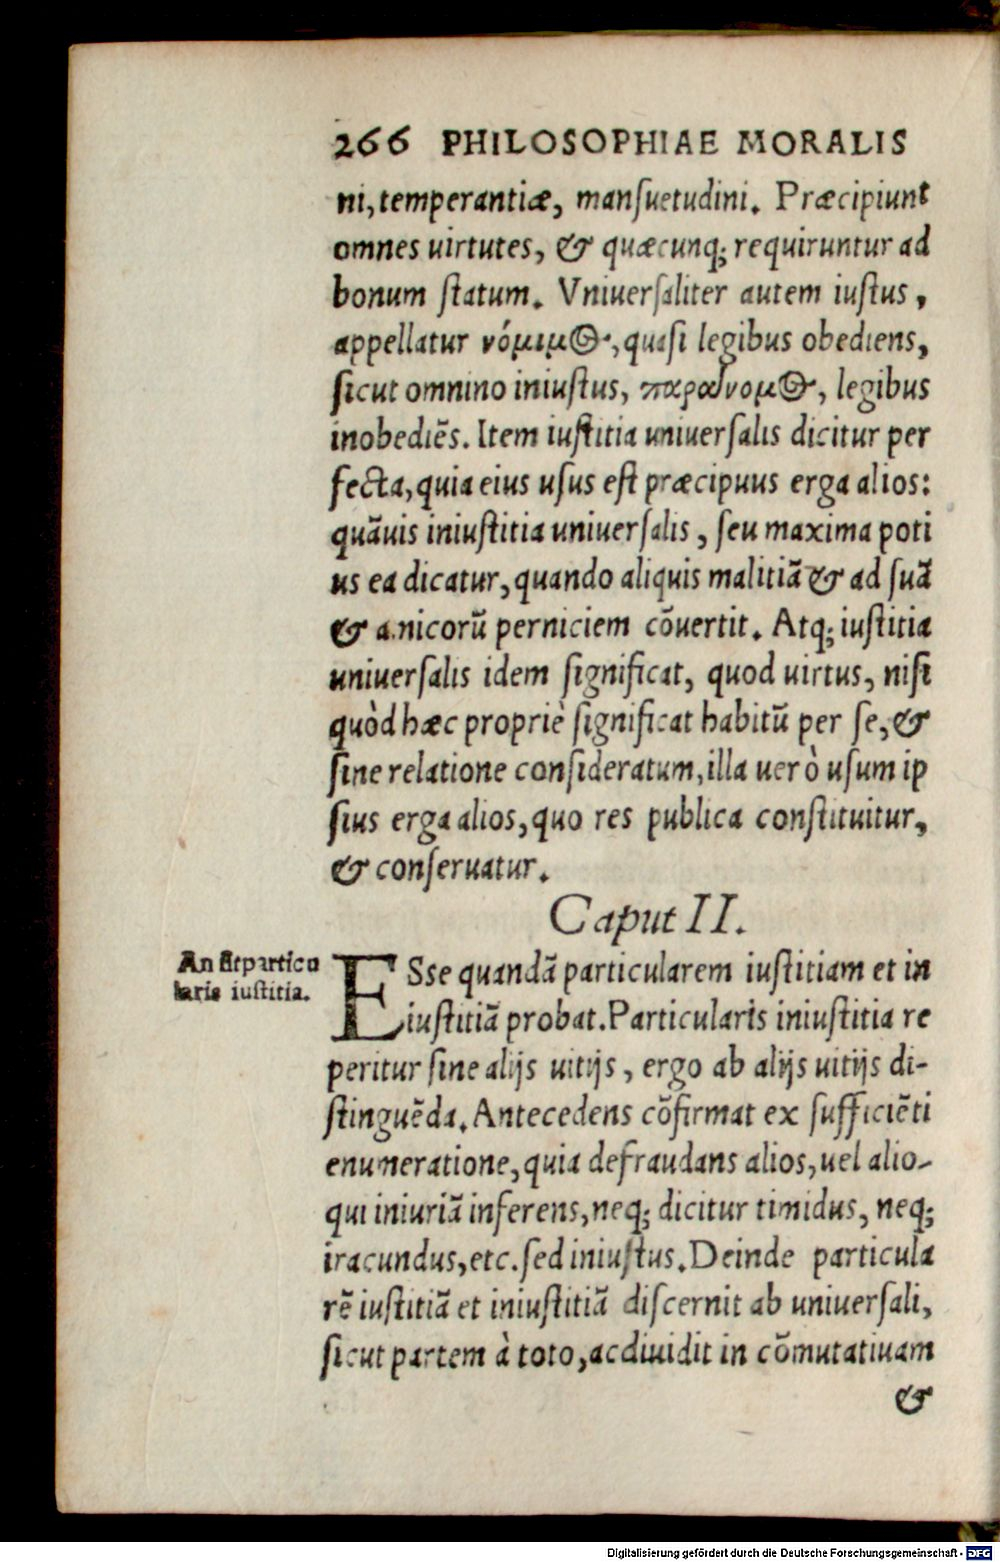 266 PHILOSOPHIAE MORALIS
ni, temperantiæ, manſuetudini. Præcipiunt
omnes uirtutes, & quæcunq; requiruntur ad
bonum ſtatum. Vniuerſaliter autem iuſtus,
appellatur νόμιμος, quaſi legibus obediens,
ſicut omnino iniuſtus, παράνομος, legibus
inobediẽs. Item iuſtitia uniuerſalis dicitur per
fecta, quia eius uſus eſt præcipuus erga alios:
quãuis iniuſtitia uniuerſalis, ſeu maxima poti
us ea dicatur, quando aliquis malitiã & ad ſuã
& amicorũ perniciem cõuertit. Atq; iuſtitia
uniuerſalis idem ſignificat, quod uirtus, niſi
quòd hæc propriè ſignificat habitũ per ſe, &
ſine relatione conſideratum, illa uerò uſum ip
ſius erga alios, quo res publica conſtituitur,
& conſeruatur.
Caput II.
An ſit particu
laris iuſtitia.
ESse quandã particularem iuſtitiam et in
iuſtitiã probat. Particularis iniuſtitia re
peritur ſine alijs uitijs, ergo ab alijs uitijs di-
ſtinguẽda. Antecedens cõfirmat ex ſufficiẽti
enumeratione, quia defraudans alios, uel alio-
qui iniuriã inferens, neq; dicitur timidus, neq;
iracundus, etc. ſed iniuſtus. Deinde particula
rẽ iuſtitiã et iniuſtitiã diſcernit ab uniuerſali,
ſicut partem à toto, ac diuidit in cõmutatiuam
&
Digitalisierung gefördert durch die Deutsche Forschungsgemeinschaft - DFG